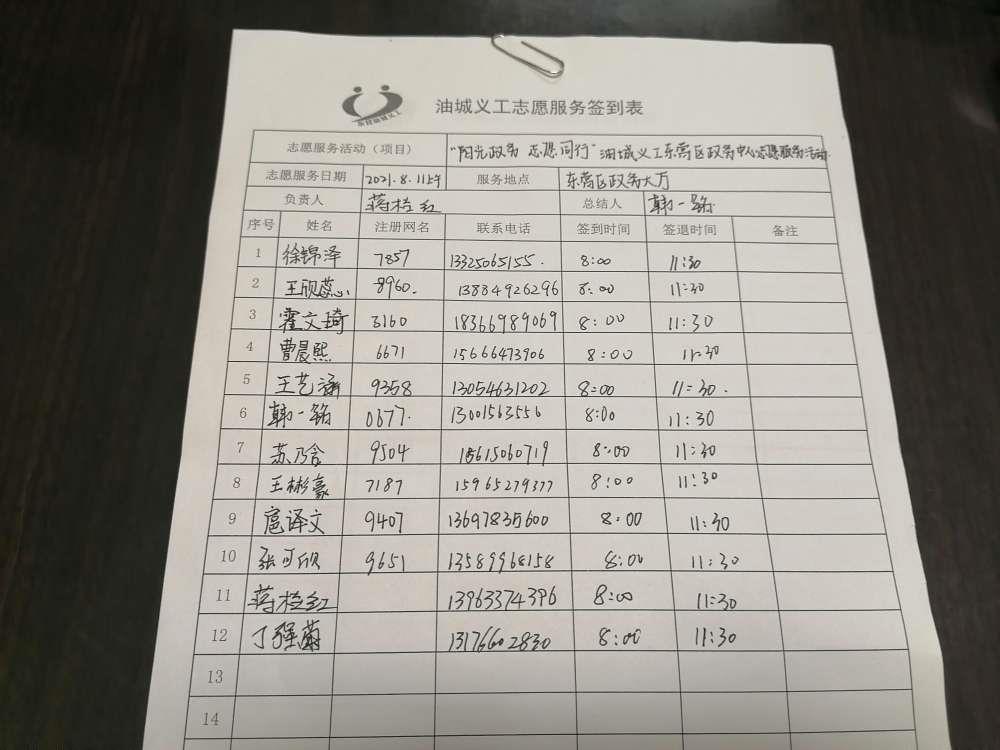 东营油城义工
油城义工志愿服务签到表
志愿服务活动（项目） "阳光政务 志愿同行"油城义工东营区政务中心志愿服务活动.
志愿服务日期 2021.8.11上午 服务地点 东营区政务大厅
负责人 蒋桂红 总结人 韩一铭
序号 姓名 注册网名 联系电话 签到时间 签退时间 备注
1 徐锦泽 7857 13325065155. 8:00 11:30
2 王颀蕊 8960. 13884926296 8:00 11:30
3 霍文琦 3160 18366989069 8:00 11:30
4 曹晨熙 6671 15666473906 8:00 11:30
5 王艺涵 9358 13054631202 8:00 11:30.
6 韩一铭 0677. 13001563556 8:00 11:30
7 苏乃含 9504 15615060719 8:00 11:30
8 王彬豪 7187 15965279377 8:00 11:30
9 扈译文 9407 13697835600 8:00 11:30
10 张可欣 9651 13589968158 8:00 11:30
11 蒋桂红 13963374396 8:00 11:30
12 丁强蔚 13176602830 8:00 11:30
13
14